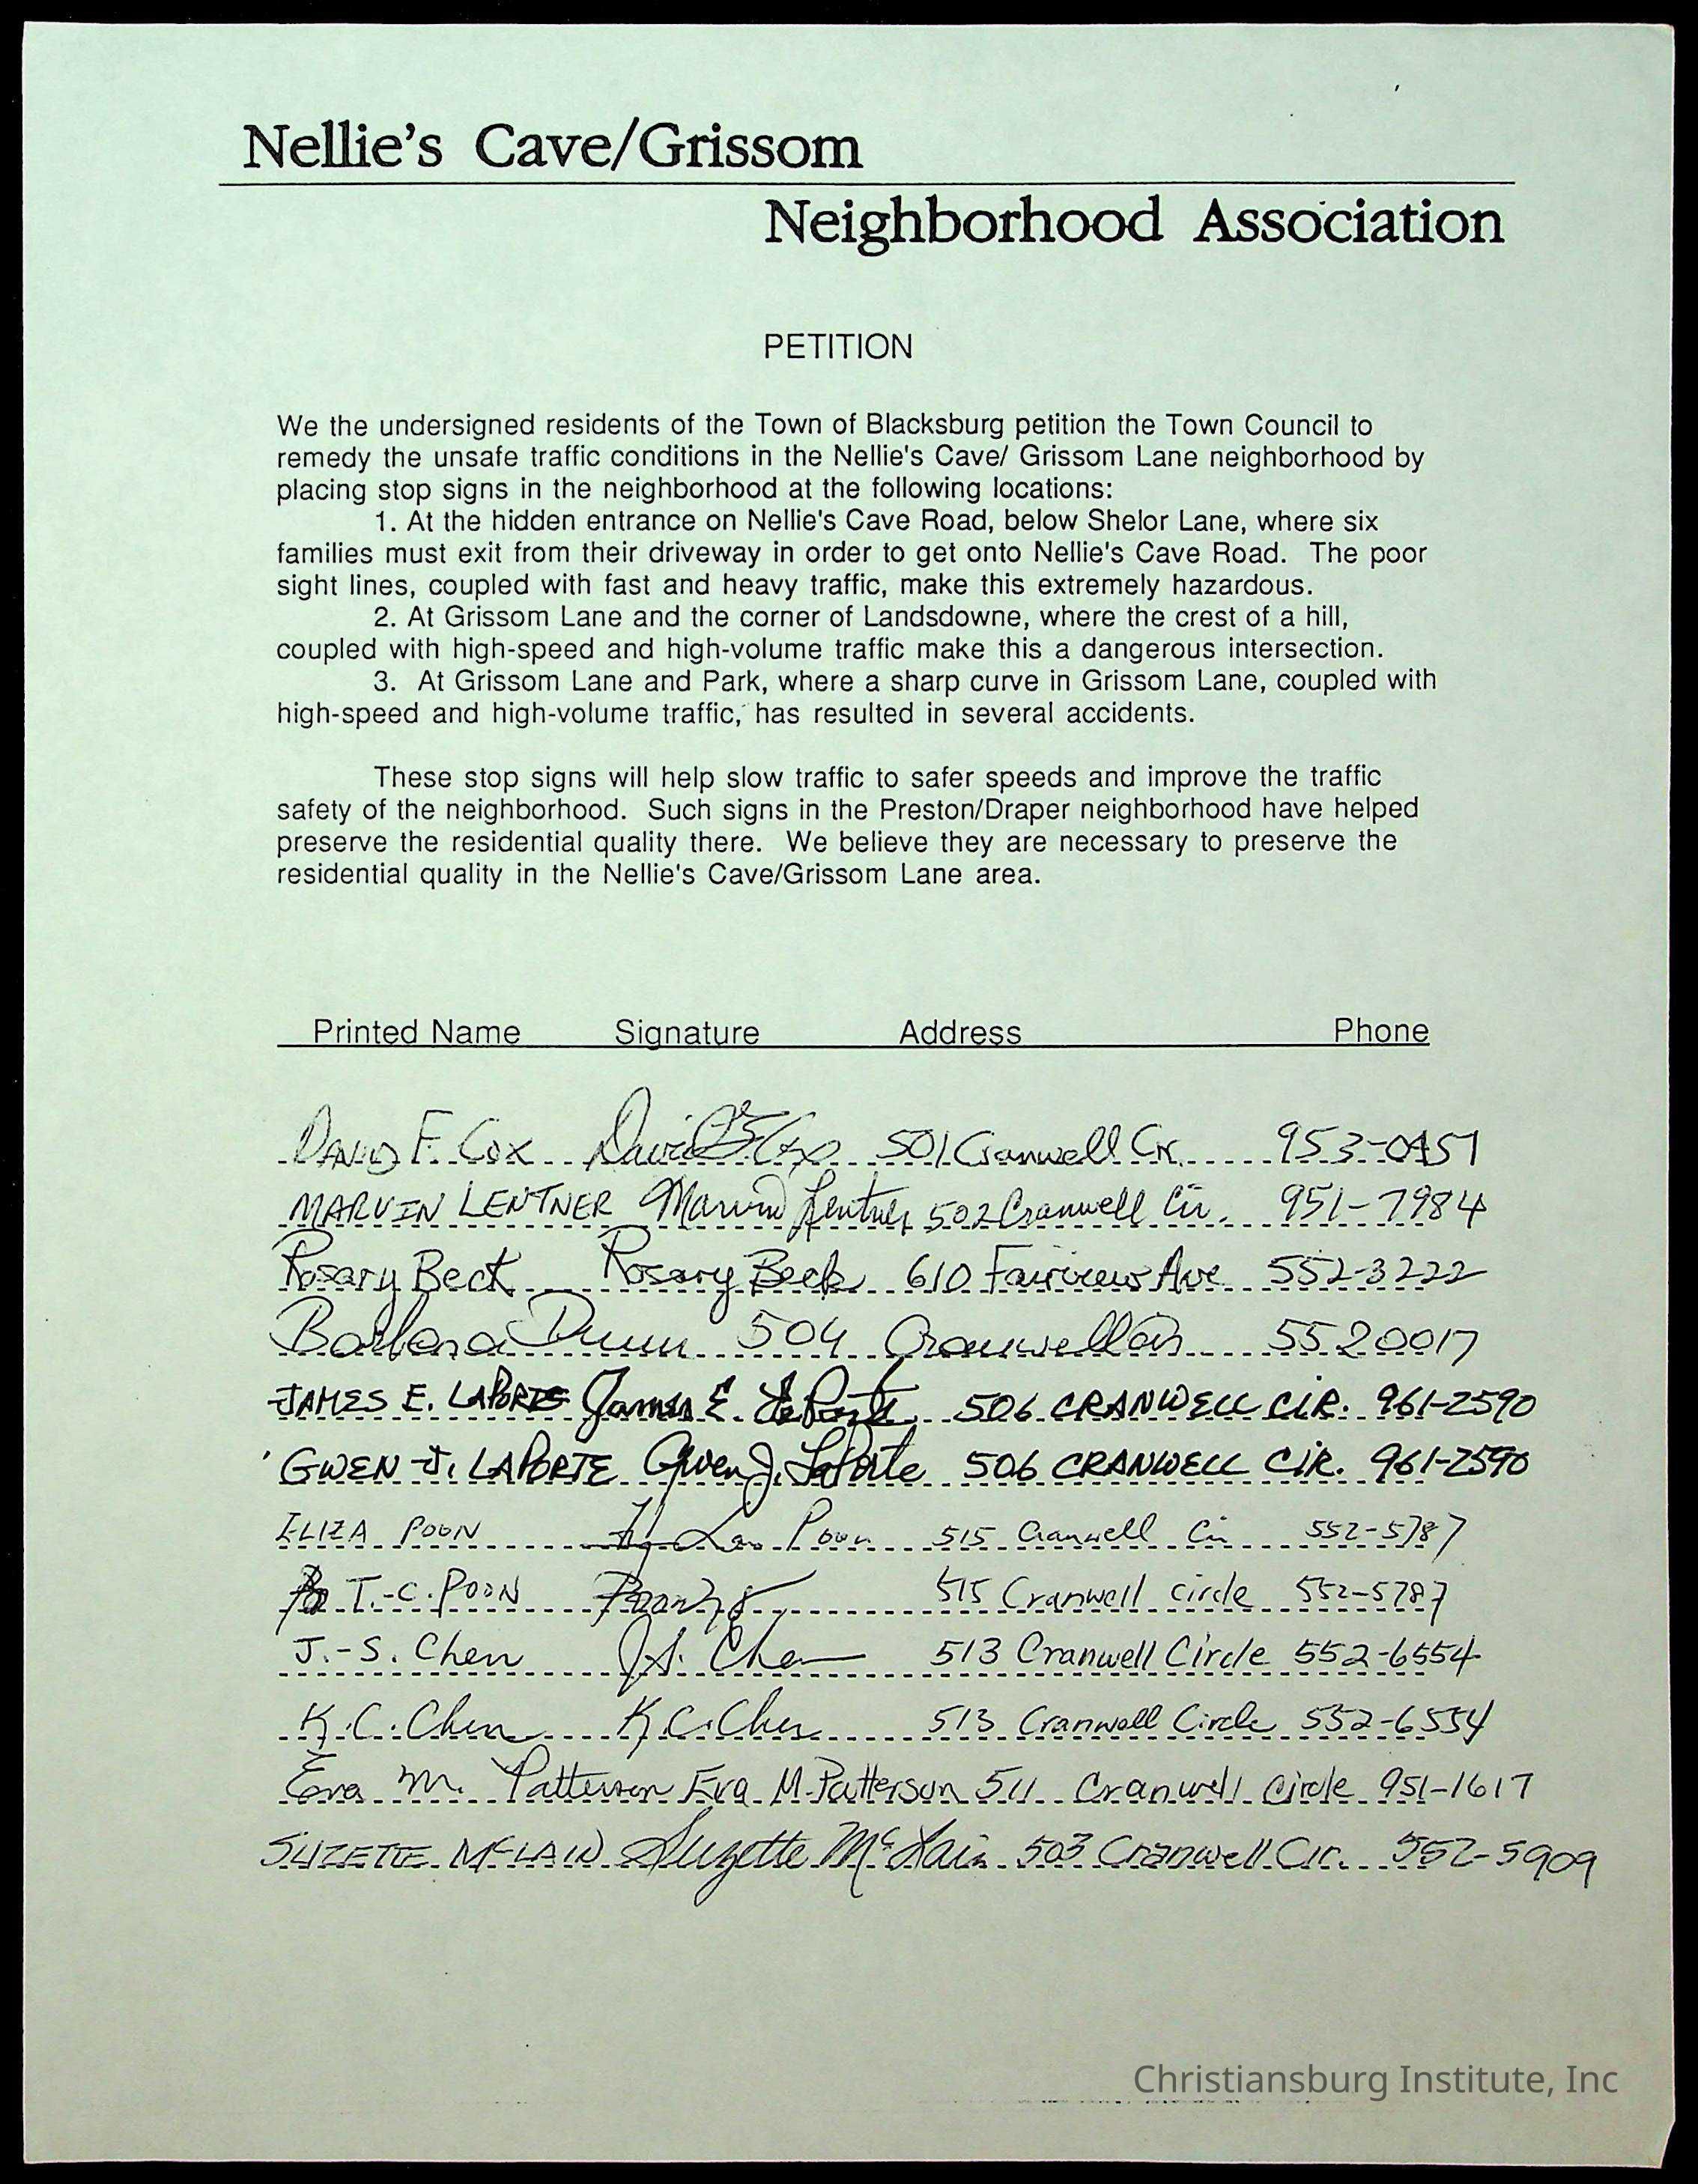 Nellie's Cave/Grissom
Neighborhood Association
PETITION
We the undersigned residents of the Town of Blacksburg petition the Town Council to
remedy the unsafe traffic conditions in the Nellie's Cave/ Grissom Lane neighborhood by
placing stop signs in the neighborhood at the following locations:
1. At the hidden entrance on Nellie's Cave Road, below Shelor Lane, where six
families must exit from their driveway in order to get onto Nellie's Cave Road. The poor
sight lines, coupled with fast and heavy traffic, make this extremely hazardous.
2. At Grissom Lane and the corner of Landsdowne, where the crest of a hill,
coupled with high-speed and high-volume traffic make this a dangerous intersection.
3. At Grissom Lane and Park, where a sharp curve in Grissom Lane, coupled with
high-speed and high-volume traffic, has resulted in several accidents.
These stop signs will help slow traffic to safer speeds and improve the traffic
safety of the neighborhood. Such signs in the Preston/Draper neighborhood have helped
preserve the residential quality there. We believe they are necessary to preserve the
residential quality in the Nellie's Cave/Grissom Lane area.
Printed Name Signature Address Phone
DAVID F. COX David F Cox 501 Cranwell Cir. 953-0451
MARVIN LENTNER Marvin Lentner 502 Cranwell Cir. 951-7984
Rosary Beck Rosary Beck 610 Fairview Ave 552-3222
Barbara Dunn 504 Cranwell Cir 552 0017
JAMES E. LAPORTE James E. LaPorte 506 CRANWELL CIR. 961-2590
GWEN J. LAPORTE Gwen J. LaPorte 506 CRANWELL CIR. 961-2590
ELIZA POON Poon 515 Cranwell Cir 552-5787
T.-C. POON Poon 515 Cranwell circle 552-5787
J.-S. Chen J.S. Chen 513 Cranwell Circle 552-6554
K.C. Chen K.C. Chen 513 Cranwell Circle 552-6554
Eva M. Patterson Eva M. Patterson 511 Cranwell Circle 951-1617
SUZETTE McLAIN Suzette McLain 503 Cranwell Cir. 552-5909
Christiansburg Institute, Inc